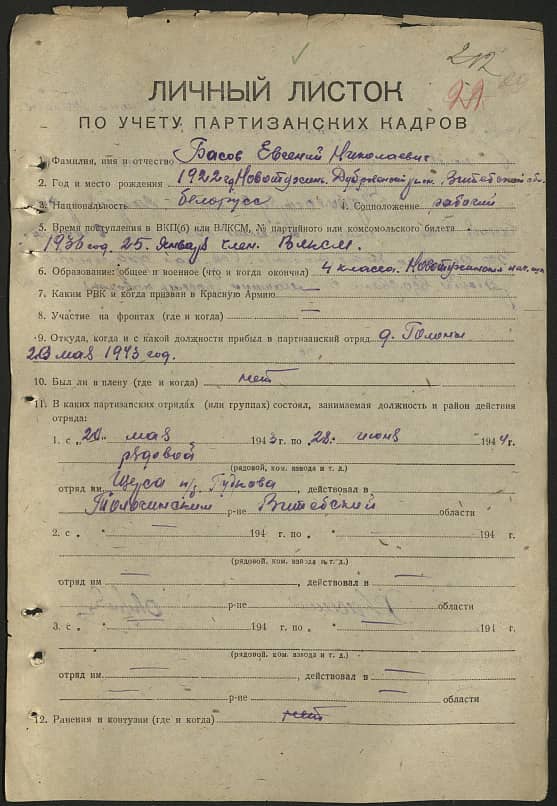 212
22
ЛИЧНЫЙ ЛИСТОК
ПО УЧЕТУ ПАРТИЗАНСКИХ КАДРОВ
1. Фамилия, имя и отчество Басов Евгений Николаевич
2. Год и место рождения 1922 г. Дубровенский Витебской обл.
3. Национальность белорусс 4. Соцположение рабочий
5. Время поступления в ВКП(б) или ВЛКСМ, № партийного или комсомольского билета
1936 год. 25 января член. ВЛКСМ.
6. Образование: общее и военное (что и когда окончил) 4 класса.
7. Каким РВК и когда призван в Красную Армию —
8. Участие на фронтах (где и когда) —
9. Откуда, когда и с какой должности прибыл в партизанский отряд д.
мая 1943 год.
10. Был ли в плену (где и когда) нет
11. В каких партизанских отрядах (или группах) состоял, занимаемая должность и район действия
отряда:
1. с „20" мая 1943 г. по „28" июня 1944 г.
рядовой
(рядовой, ком. взвода и т. д.)
отряд им Щорса п/б. Гудкова, действовал в
Толочинским р-не Витебский области
2. с „ — 194 г. по „ — 194 г.
(рядовой, ком. взвода и т. д.)
отряд им —, действовал в —
р-не области
3. с „ — 194 г. по „ — 194 г.
(рядовой, ком. взвода и т. д.)
отряд им —, действовал в —
— р-не — области
12. Ранения и контузии (где и когда) нет